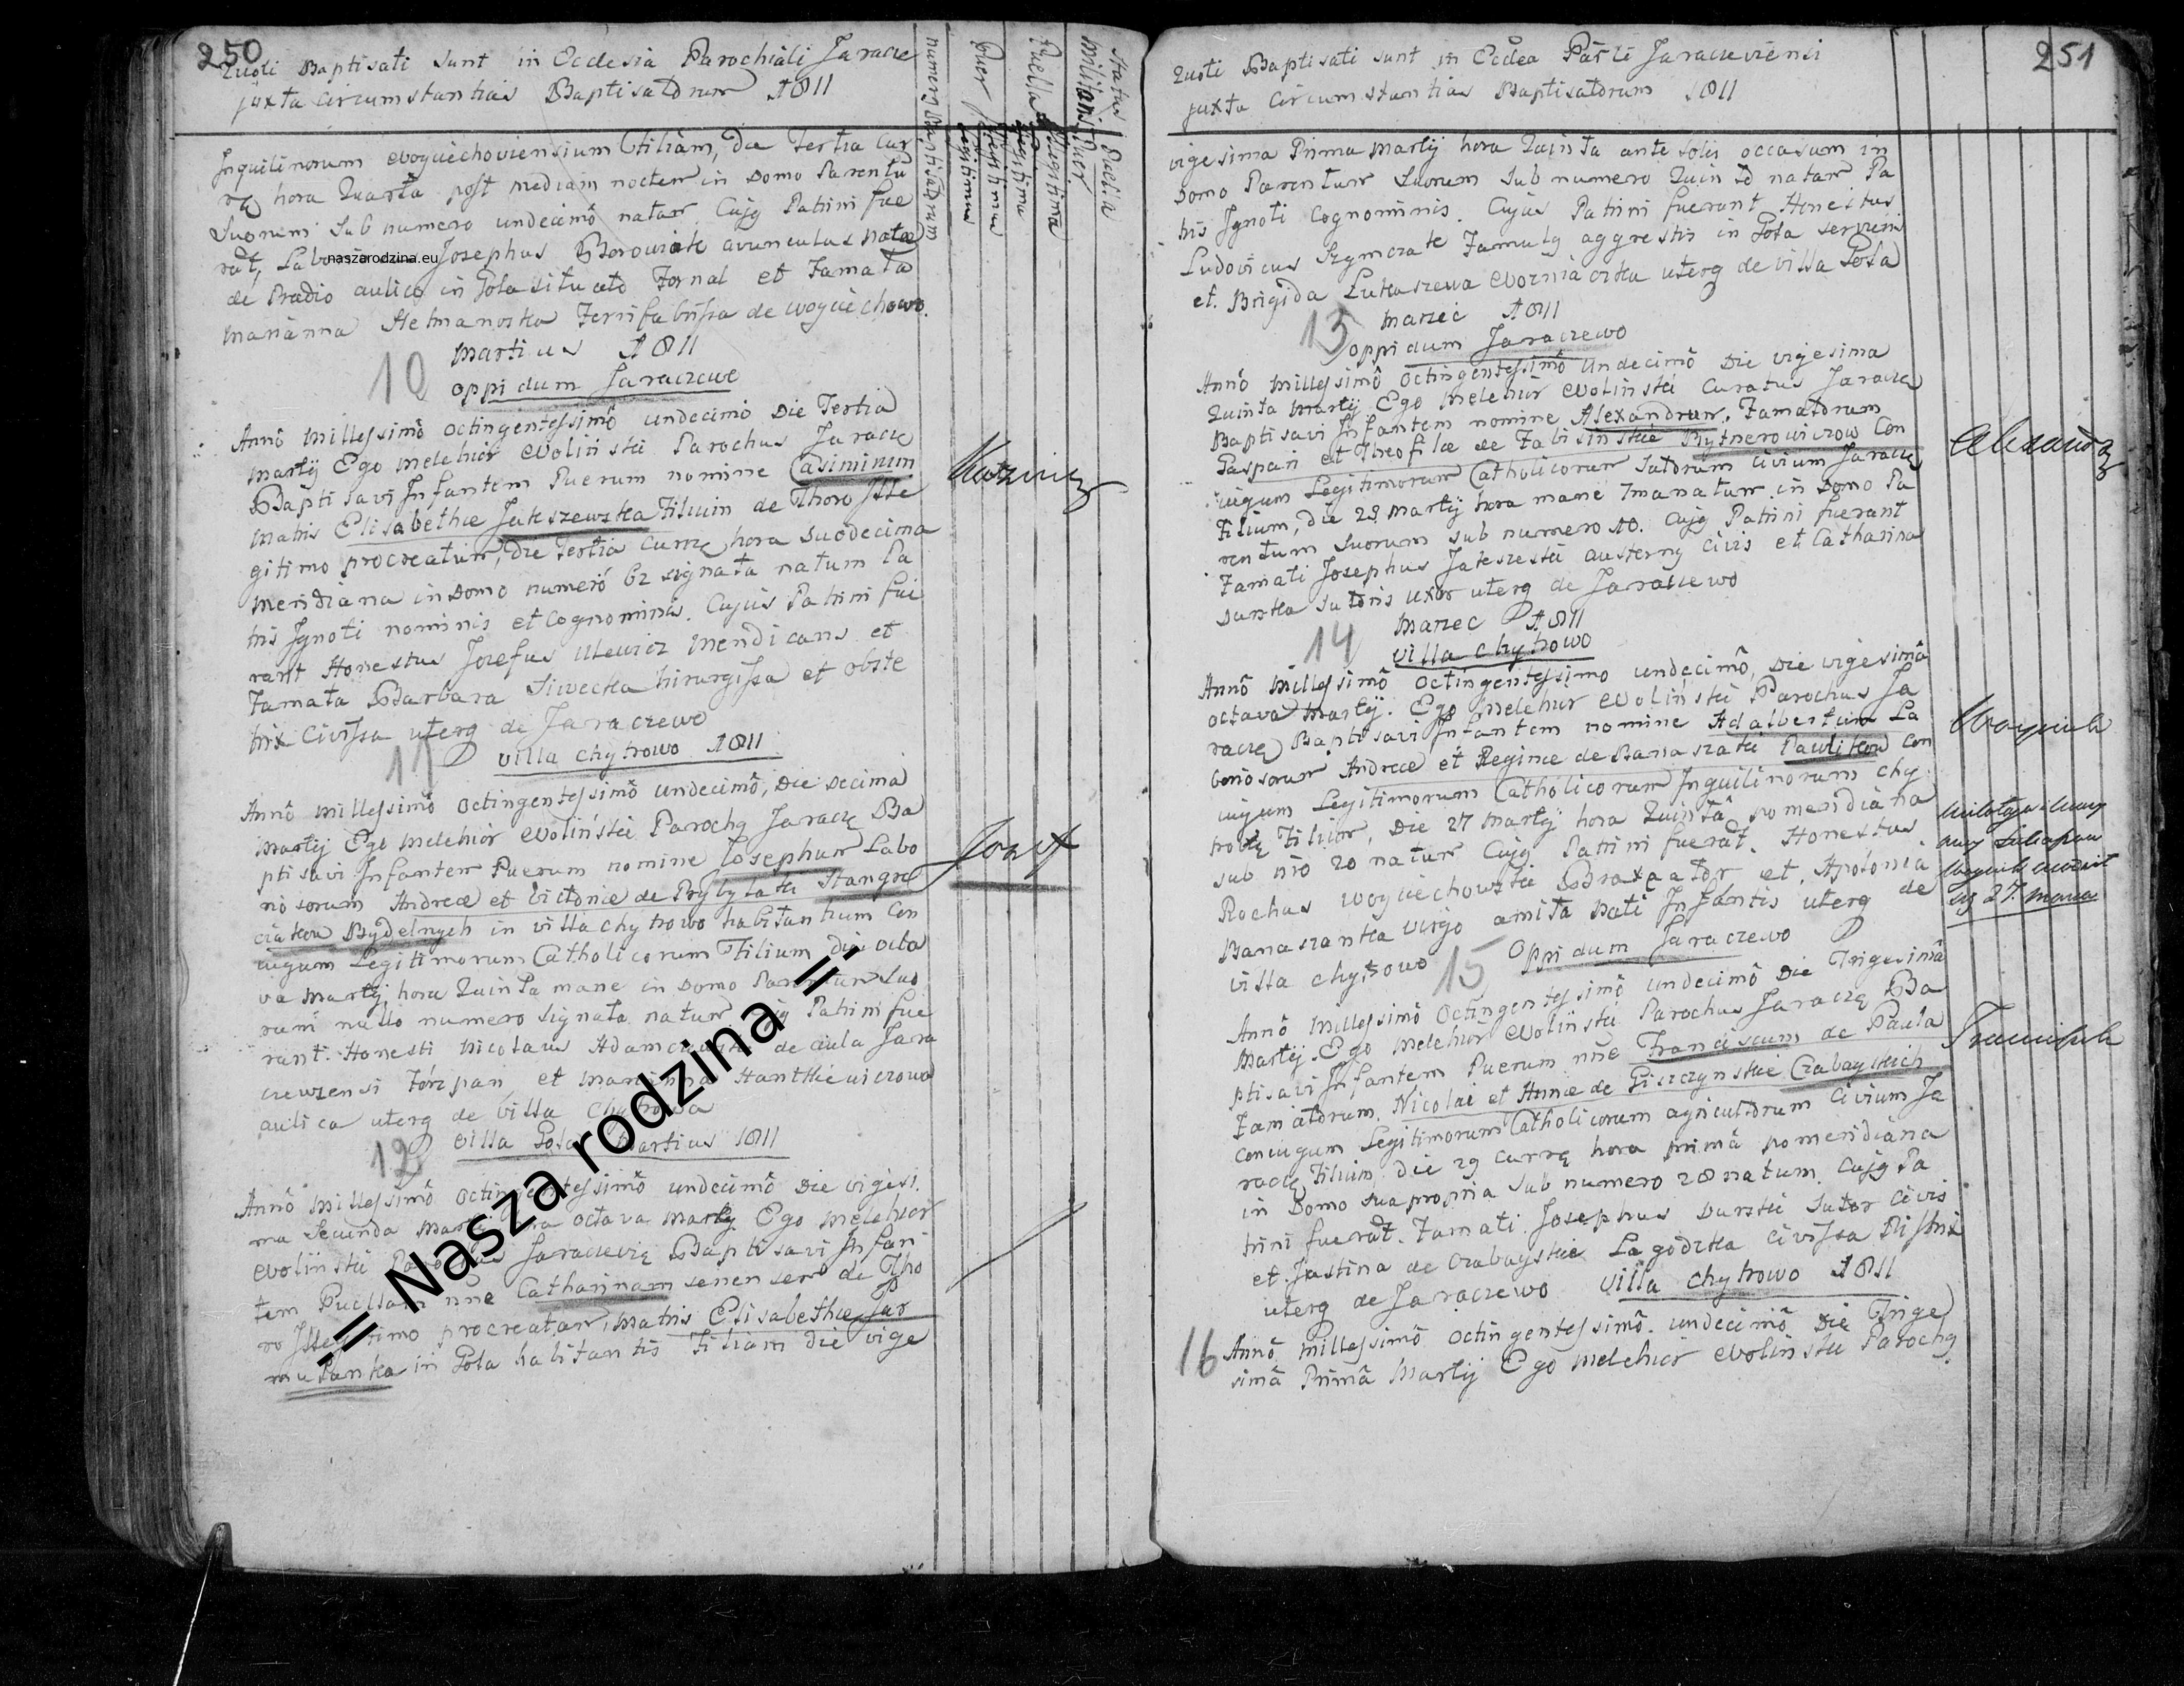 250
Quoti Baptisati sunt in Ecclesia Parochiali Jaracze
juxta circumstantias Baptisatorum 1811
numerg Baptisatorum
Puer
Legitimus
Puella
Status
militaris
Puer
Puella
Inquilinorum Woyciechoviensium Filiam, die Tertia Cur
rę hora Quarta post mediam noctem in Domo Parentu
Suorum Sub numero undecimô natam Cujg Patrini fue
rat, Josephus Borowiak avunculus nata
naszarodzina.eu
de Prædio aulico in Gola situato Fornal et Famata
Marianna Hetmanoska de woyciechowo.
10
Martius 1811
oppidum Jaraczewo
Annô Millessimô octingentessimô undecimo Die Tertia
Martÿ Ego Melchior Wolinskii Parochus Jaraczę
Baptisavi Infantem Puerum nomine Casimirum
Matris Elisabethæ Jakszewska Filium de Thoro Ille
gitimo procreatum, Die Tertia Currę hora duodecima
meridiana in Domo numerô 62 signata natum Pa
tris Ignoti nominis et Cognominis. Cujus Patrini fue
rant Honestus Josefus mendicans et
Famata Barbara Siwecka hirurgissa et obste
trix Civissa uterg de Jaraczewo
11
villa Chytrowo 1811
Annô Millessimô octingentessimô undecimô, Die Decima
Martÿ Ego Melchiôr Wolińskii Parochg Jaraczę Ba
ptisavi Infantem Puerum nomine Josephum Labo
riosorum Andreæ et Victoriæ de Przybylaki Stangre
ciakow Bydelnych in villa chytrowo habitantium Con
iugum Legitimorum Catholicorum Filium die octa
va Martÿ hora Quinta mane in Domo Parentum Suo
rum nullo numero signata natum Patrini fue
rant. Honesti Nicolaus de aula Jara
czewzensi et Marianna
aulica uterg de villa Chytrowa
12
villa Gola Martius 1811
Annô Millessimô octingentessimô undecimô Die vigesi
ma Secunda Martÿ hora octava Martÿ Ego Melchior
Wolinskii Parochus Jaraczevię Baptisavi Infan
tem Puellam nñe Catharinam de Tho
ro Illegitimo procreatam, Matris Elisabethæ
in Gola habitantis Filiam die vige
Kazmirz
Jozef
-= Nasza rodzina =-
251
Quoti Baptisati sunt in Eccleâ Parli Jaraczeviensi
juxta Circumstantias Baptisatorum 1811
vigesima Prima Martÿ hora Quinta ante Solis occasum in
Domo Parentum Suorum Sub numero Quinto natam Pa
tris Ignoti Cognominis. Cujus Patrini fuerant Honestus
Ludovicus Szymczak Famulg aggrestis in Gola serviens
et. Brigida Lukaszewa uterg de villa Gola
13
Marzec 1811
oppidum Jaraczewo
Annô Millessimô octingentessimô undecimô Die vigesima
Quinta Martÿ Ego Melchiôr Wolinskii Curatus Jaraczę
Baptisavi Infantem nomine Alexandrum, Famatorum
Gaspari et Theofilæ de Fabisinskie Rytnerowiczow Con
iugum Legitimorum Catholicorum Sutorum Civium Jaraczę
Filium, die 23 Martÿ hora mane 7ma natum in Domo Pa
rentum Suorum sub numero 10. Cujg Patrini fuerant
Famati Josephus civis et Catharina
Durska Sutoris uxor uterg de Jaraczewo
14
Marzec 1811
villa chytrowo
Annô Millessimô octingentessimo undecimô, Die vigesimâ
octava Martÿ. Ego Melchior Wolinskii Parochus Ja
raczę Baptisavi Infantem nomine Adalbertum La
boriosorum Andreæ et Reginæ de Banaszaki Pawlikow Con
iugum Legitimorum Catholicorum Inquilinorum chy
trowę Filium, Die 27 Martÿ hora Quintâ pomeridiana
sub nrô 20 natum Cujg Patrini fuerât. Honestus
Rochus woyciechowzki et. Apolonia
Banaszanka virgo amita Nati Infantis uterg de
villa chytrowo
15
Oppidum Jaraczewo
Annô Millessimô octingentessimô undecimô Die Trigesimâ
Martÿ. Ego Melchior Wolinskii Parochus Jaraczę Ba
ptisavi Infantem Puerum nñe Franciscum de Paula
Famatorum. Nicolai et Annæ de Giszczynskie Czabayskich
Coniugum Legitimorum Catholicorum agricultorum Civium Ja
raczę Filium, die 29 currę hora primâ pomeridiâna
in Domo sua propria sub numero 28 natum. Cujg Pa
trini fuerât. Famati Josephus Durski Sutor Civis
et. Justina de Czabayskie Lagodzka Civissa
uterg de Jaraczewo
villa chytrowo 1811
16
Annô Millessimô octingentessimô. undecimô Die Trige
simâ Primâ Martÿ Ego Melchior Wolinskii Parochg
Alexandr
Woyciech
27. marca
Franciszek